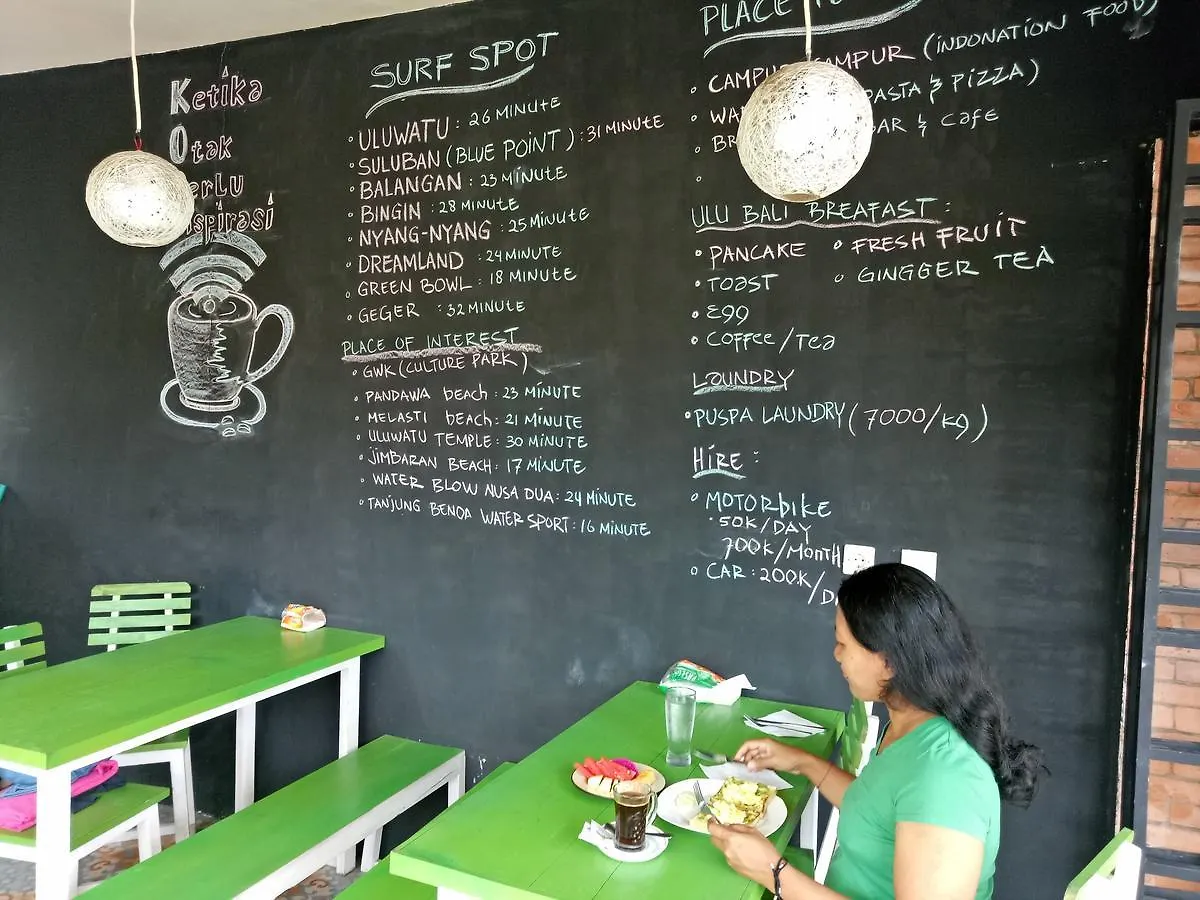 Ketika
Otak
erLu
spirasi
SURF SPOT
ULUWATU : 26 MINUTE
SULUBAN (BLUE POINT) : 31 MINUTE
BALANGAN : 23 MINUTE
BINGIN : 28 MINUTE
NYANG-NYANG : 25 MINUTE
DREAMLAND : 24 MINUTE
GREEN BOWL : 18 MINUTE
GEGER : 32 MINUTE
PLACE OF INTEREST
GWK (CULTURE PARK)
PANDAWA beach : 23 MINUTE
MELASTI beach : 21 MINUTE
ULUWATU TEMPLE : 30 MINUTE
JIMBARAN BEACH : 17 MINUTE
WATER BLOW NUSA DUA : 24 MINUTE
TANJUNG BENOA WATER SPORT : 16 MINUTE
PLACE
CAMPUR CAMPUR (INDONATION FOOD)
PASTA & PIZZA)
BAR & Cafe
ULU BALI BREAFAST :
PANCAKE
FRESH FRUIT
TOAST
GINGGER TEA
Egg
Coffee/Tea
LAUNDRY
PUSPA LAUNDRY (7000/Kg)
Hire :
MOTORbikE
50K/DAY
700K/MonTH
CAR : 200K/D